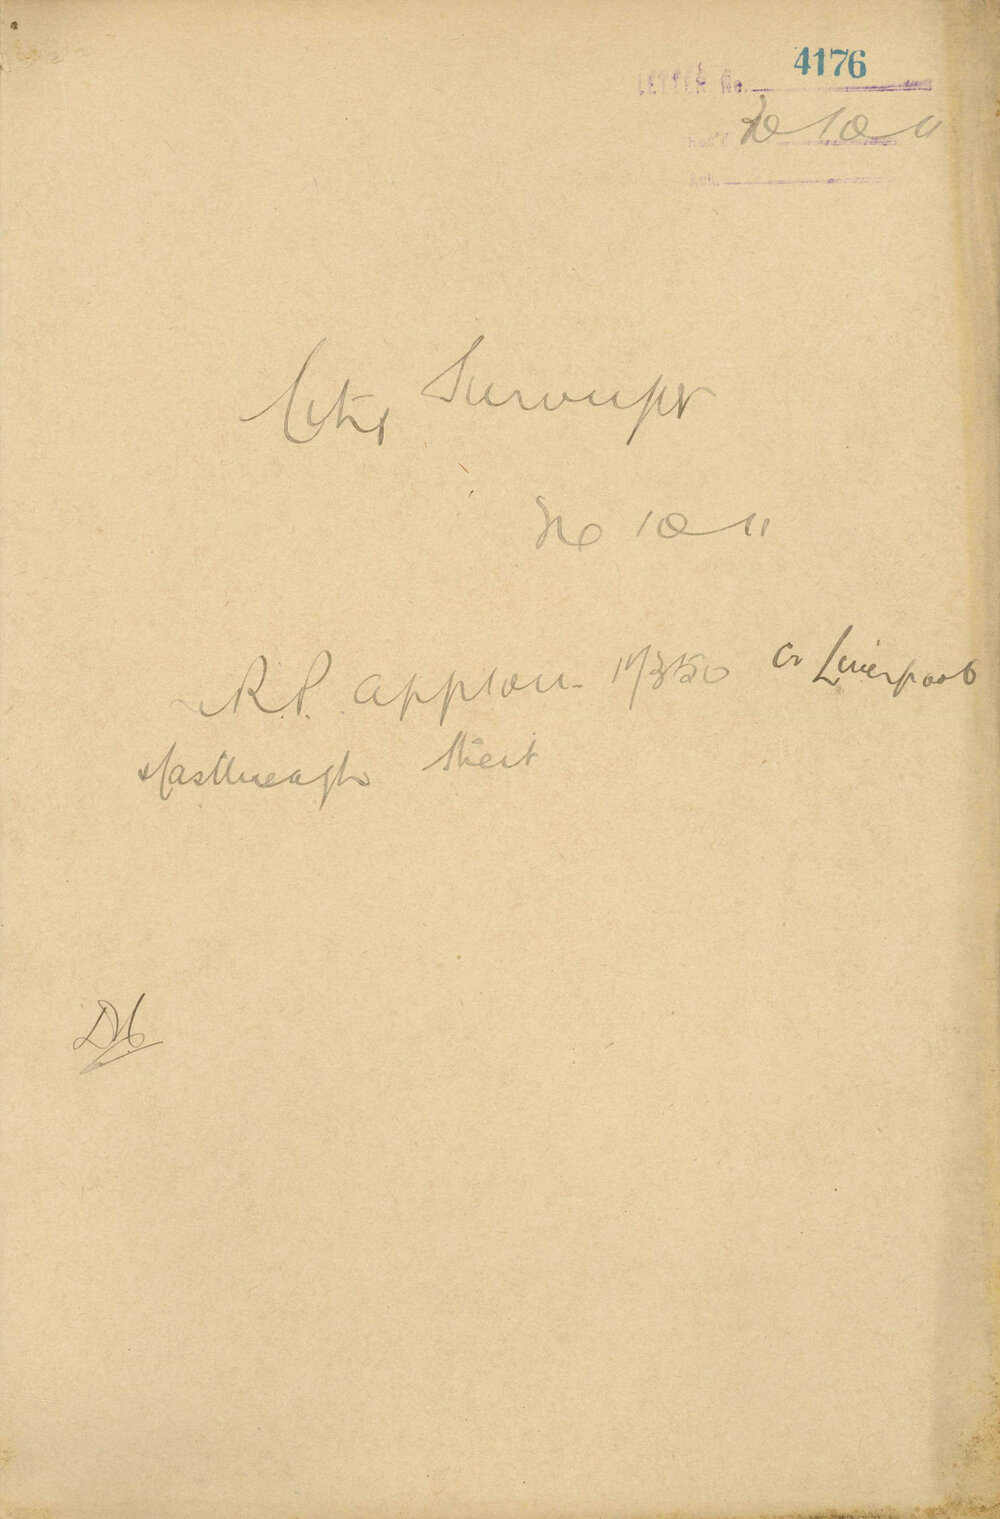 LETTER No. 4176
Rec'd 20 10 11
Ack.
City Surveyor
20 10 11
R.P. Appn 11/350 Cr Liverpool
& Castlereagh Street